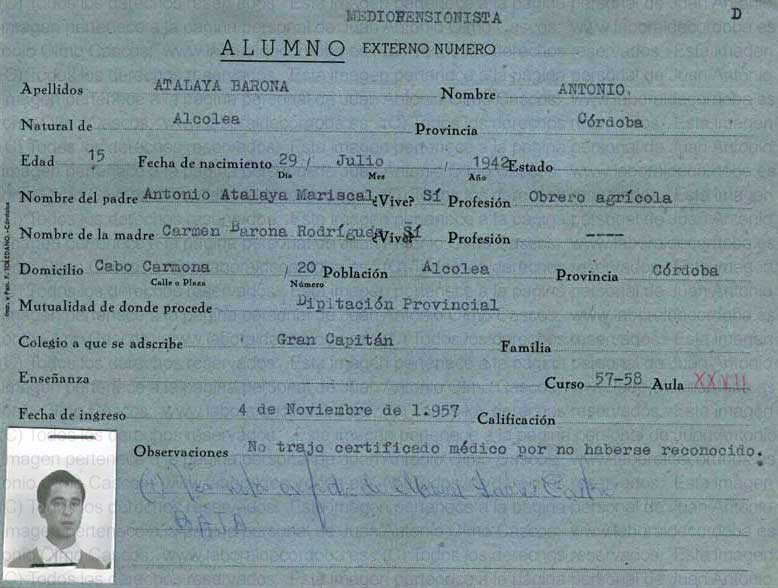 MEDIOPENSIONISTA D
ALUMNO EXTERNO NUMERO
Apellidos ATALAYA BARONA Nombre ANTONIO.
Natural de Alcolea Provincia Córdoba
Edad 15 Fecha de nacimiento 29 / Julio / 1942 Estado
Día Mes Año
Nombre del padre Antonio Atalaya Mariscal ¿Vive? Sí Profesión Obrero agrícola
Nombre de la madre Carmen Barona Rodríguea ¿Vive? Sí Profesión ----
Domicilio Cabo Carmona / 20 Población Alcolea Provincia Córdoba
Calle o Plaza Número
Mutualidad de donde procede Dipitación Provincial
Colegio a que se adscribe Gran Capitán Familia
Enseñanza Curso 57-58 Aula XXVII
Fecha de ingreso 4 de Noviembre de 1.957 Calificación
Observaciones No trajo certificado médico por no haberse reconocido.
Imp. y Pap. F. TOLEDANO.-Córdoba